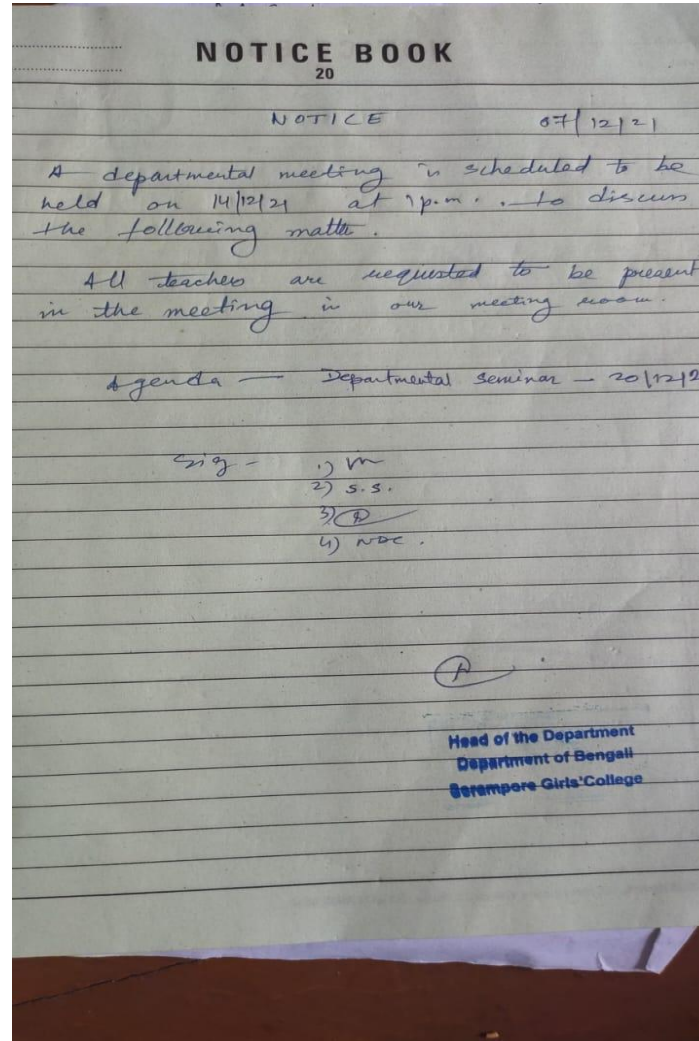 NOTICE BOOK
20
NOTICE 07/12/21
A departmental meeting is scheduled to be
held on 14/12/21 at 1 p.m. . to discuss
the following matter.
All teachers are requested to be present
in the meeting in our meeting room.
Agenda — Departmental seminar — 20/12/2
Sig - 1) 
2) S.S.
3)
4) NDC.
Head of the Department
Department of Bengali
Serampore Girls' College